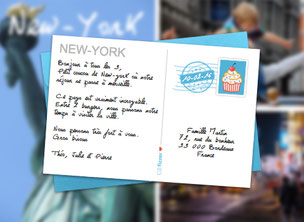 New-York
NEW-YORK
Bonjour à tous les 3,
Petit coucou de New-york où notre
séjour se passe à merveille.
Ce pays est vraiment incroyable.
Entre 2 burgers, nous prenons notre
temps à visiter la ville.
Nous pensons très fort à vous.
Gros bisous
Théo, Julie et Pierre
10-02-16
Famille Martin
72, rue du bonheur
33 000 Bordeaux
France